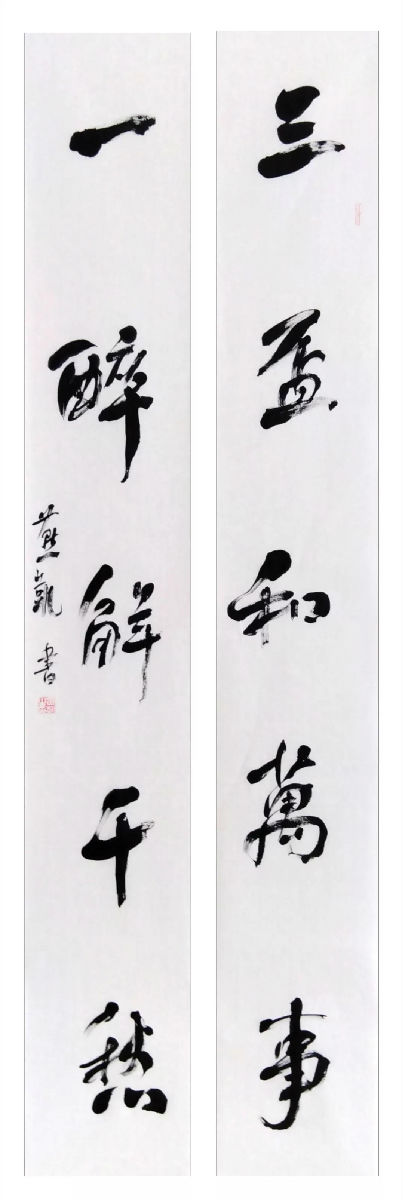 三盃和萬事
一醉解千愁
燕凱書